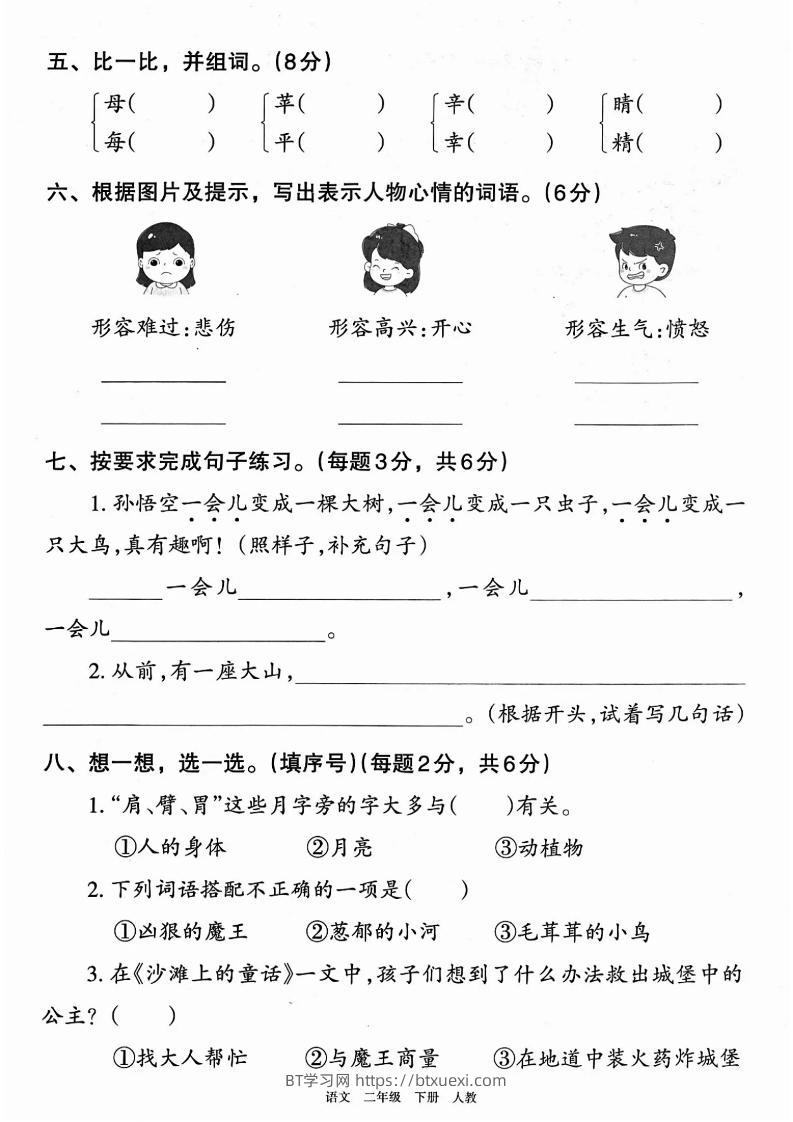 五、比一比，并组词。(8分)
母(　　) 苹(　　) 辛(　　) 睛(　　)
每(　　) 平(　　) 幸(　　) 精(　　)
六、根据图片及提示，写出表示人物心情的词语。(6分)
形容难过:悲伤 形容高兴:开心 形容生气:愤怒
七、按要求完成句子练习。(每题3分，共6分)
1. 孙悟空一会儿变成一棵大树,一会儿变成一只虫子,一会儿变成一
只大鸟,真有趣啊！(照样子,补充句子)
______一会儿________________,一会儿________________,
一会儿________________。
2. 从前,有一座大山,________________
________________。(根据开头,试着写几句话)
八、想一想，选一选。(填序号)(每题2分，共6分)
1. “肩、臂、胃”这些月字旁的字大多与(　　)有关。
①人的身体 ②月亮 ③动植物
2. 下列词语搭配不正确的一项是(　　)
①凶狠的魔王 ②葱郁的小河 ③毛茸茸的小鸟
3. 在《沙滩上的童话》一文中,孩子们想到了什么办法救出城堡中的
公主？(　　)
①找大人帮忙 ②与魔王商量 ③在地道中装火药炸城堡
BT学习网 https://btxuexi.com
语文 二年级 下册 人教